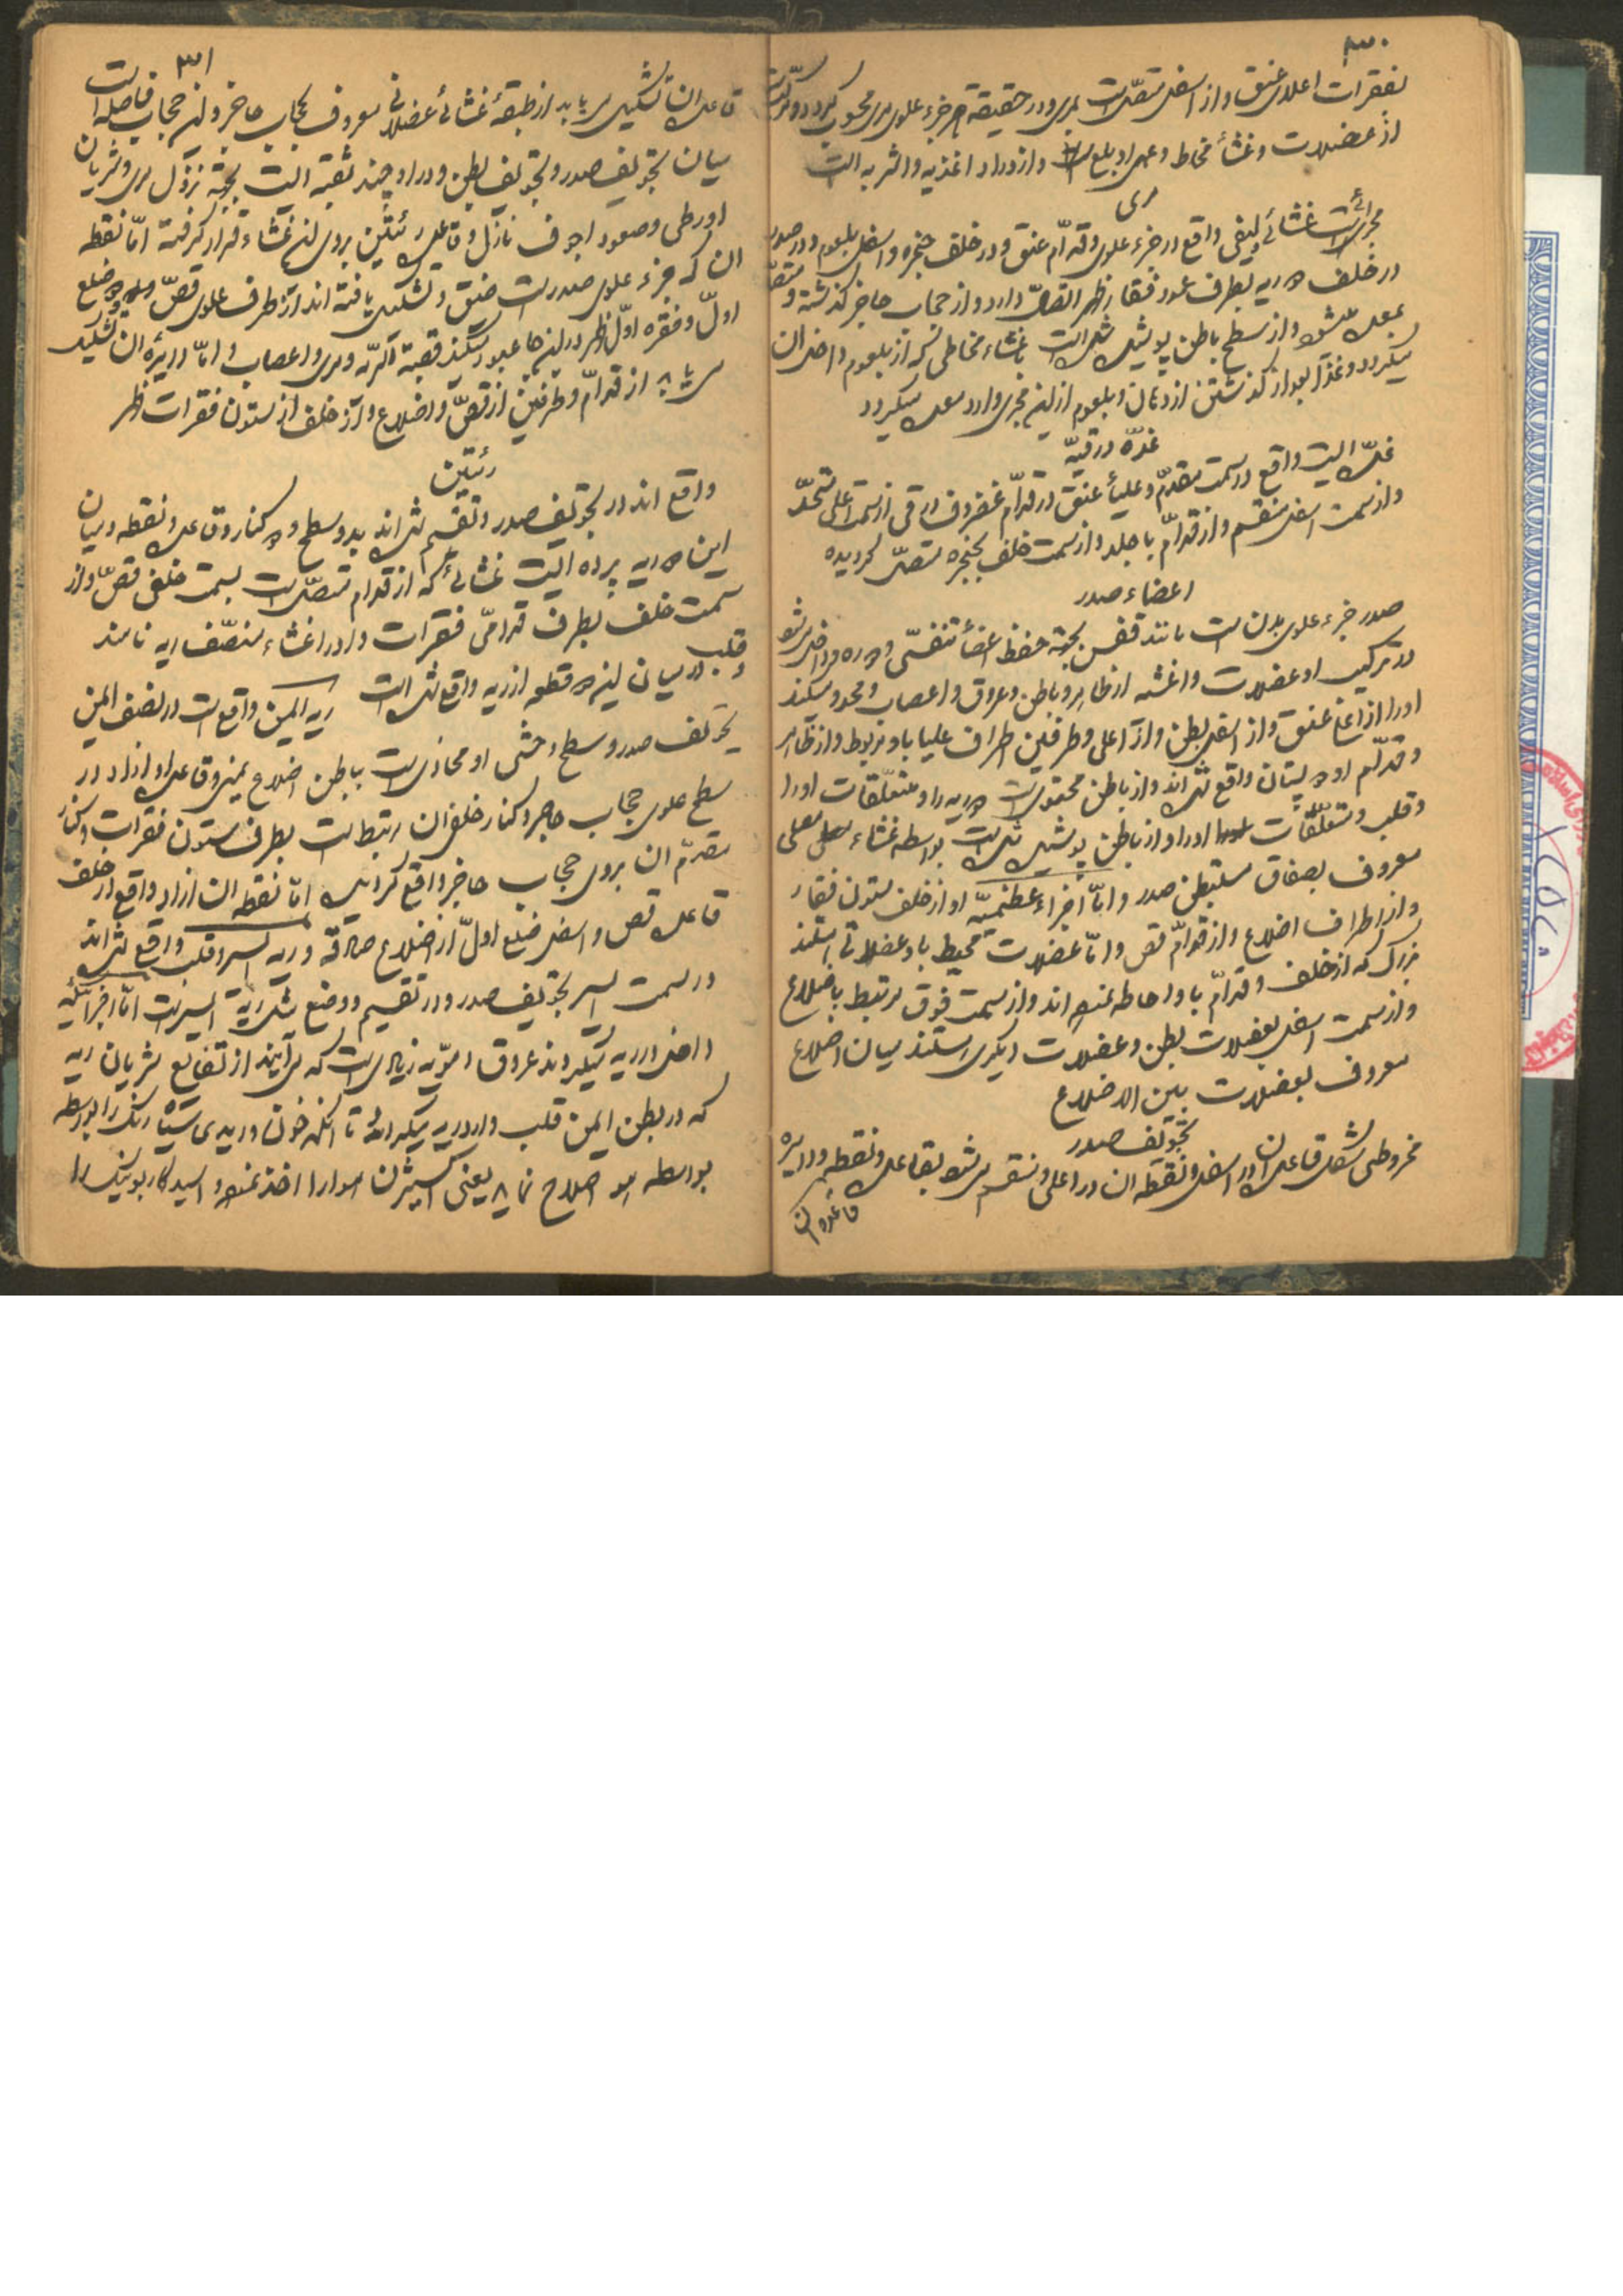 ۳۰
بفقرات اعلای عنق و از اسفل متصل است بمری و در حقیقة هر جزء علوی مری محسوب میگردد و مرکب است
از عضلات و غشاء مخاط و عمل او بلع است و ازدراد اغذیه و اشربه است
مری
مجرائیست غشائی و لیفی واقع در جزء علوی و قدام عنق و در خلف حنجره و اسفل بلعوم و در صدر
در خلف دو ریه بطرف عمود فقار ظهر اتصال دارد و از حجاب حاجز گذشته و متصل
بمعده میشود و از سطح باطن پوشیده شده است باغشاء مخاطی که از بلعوم داخل آن
میگردد و غذا بعد از گذشتن از دهان و بلعوم ازین مجری وارد معده میگردد
غدّه درقیّه
غدّه ایست واقع در سمت مقدّم و علیاء عنق در قدّام غضروف درقی از سمت اعلی متحدّ
و از سمت اسفل منقسم و از قدّام با جلد و از سمت خلف بحنجره متصل گردیده
اعضاء صدر
صدر جزء علوی بدن است مانند قفس بجهة حفظ اعضاء تنفسّی و دوره دو داخل میشود
در ترکیب او عضلات و اغشیه از ظاهر و باطن و عروق و اعصاب و محدود میکنند
او را از اعلی عنق و از اسفل بطن و از اعلی و طرفین اطراف علیا باو مربوط و از ظاهر
و قدّام او دو پستان واقع شده اند و از باطن محتوی است دو ریه را و متعلّقات او را
و قلب و متعلّقات او را و از باطن پوشیده شده است بواسطه غشاء مصلی
معروف بصفاق مستبطن صدر و امّا اجزاء عظمیّه او از خلف ستون فقار
و از اطراف اضلاع و از قدّام قص و امّا عضلات محیط باو عضلاتی استند
بزرگ که از خلف و قدّام باو احاطه نموده اند و از سمت فوق مرتبط باضلاع
و از سمت اسفل بعضلات بطن و عضلات دیگری استند میان اضلاع
معروف بعضلات بین الاضلاع
تجویف صدر
مخروطی شکل قاعده آن در اسفل و نقطه ان در اعلی و منقسم میشود بقاعده و نقطه و دایره
قاعده ان
۳۱
قاعده ان تشکیل می یابد از طبقهٔ غشائی عضلانی معروف بحجاب حاجز و این حجاب فاصله است
میان تجویف صدر و تجویف بطن و در او چند ثقبه ایست بجهة نزول مری و شریان
اورطی و صعود اجوف نازل و قاعده رئتین بروی این غشاء قرار گرفته امّا نقطه
ان که جزء علوی صدر است ضیق و تشکیل یافته اند از طرف علوی قصّ و دو ضلع
اولّ و فقره اولّ ظهر و در این جا عبور میکند قصبة الریه و مری و اعصاب و امّا دایره ان تشکیل
می یابد از قدّام و طرفین از قصّ و اضلاع و از خلف از ستون فقرات ظهر
رئتین
واقع اند در تجویف صدر و تقسیم شده اند بدو سطح و دو کنار و قاعده و نقطه و میان
این دو ریه پرده ایست غشائی که از قدام متصل است بسمت خلفی قصّ و از
سمت خلف بطرف قدّامی فقرات و او را غشاء منصّف ریه نامند
و قلب در میان این دو قطعه از ریه واقع شده است ریه ایمن واقع است در نصف ایمن
تجویف صدر و سطح وحشی او محاذی است بباطن اضلاع یمنی و قاعده او ازاد در
سطح علوی حجاب حاجز و کنار خلفی ان مرتبط است بطرف ستون فقرات و کنار
مقدّم ان بروی حجاب حاجز واقع گردیده امّا نقطه ان ازاد واقع از خلف
قاعده قص و اسفل ضلع اولّ از اضلاع صادقه و ریه ایسر و قلب واقع شده اند
در سمت ایسر تجویف صدر و در تقسیم و وضع مثل ریه ایمن است امّا اجزائیکه
داخل در ریه میگردند عروق دمّویه زیادی است که می آیند از تفاریع شریان ریه
که در بطن ایمن قلب وارد ریه میگردد تا آنکه خون وریدی سیاه رنگ را بواسطه
بواسطه هوا اصلاح نماید یعنی اکسیژن هوا را اخذ نموده و اسید کاربونیک را